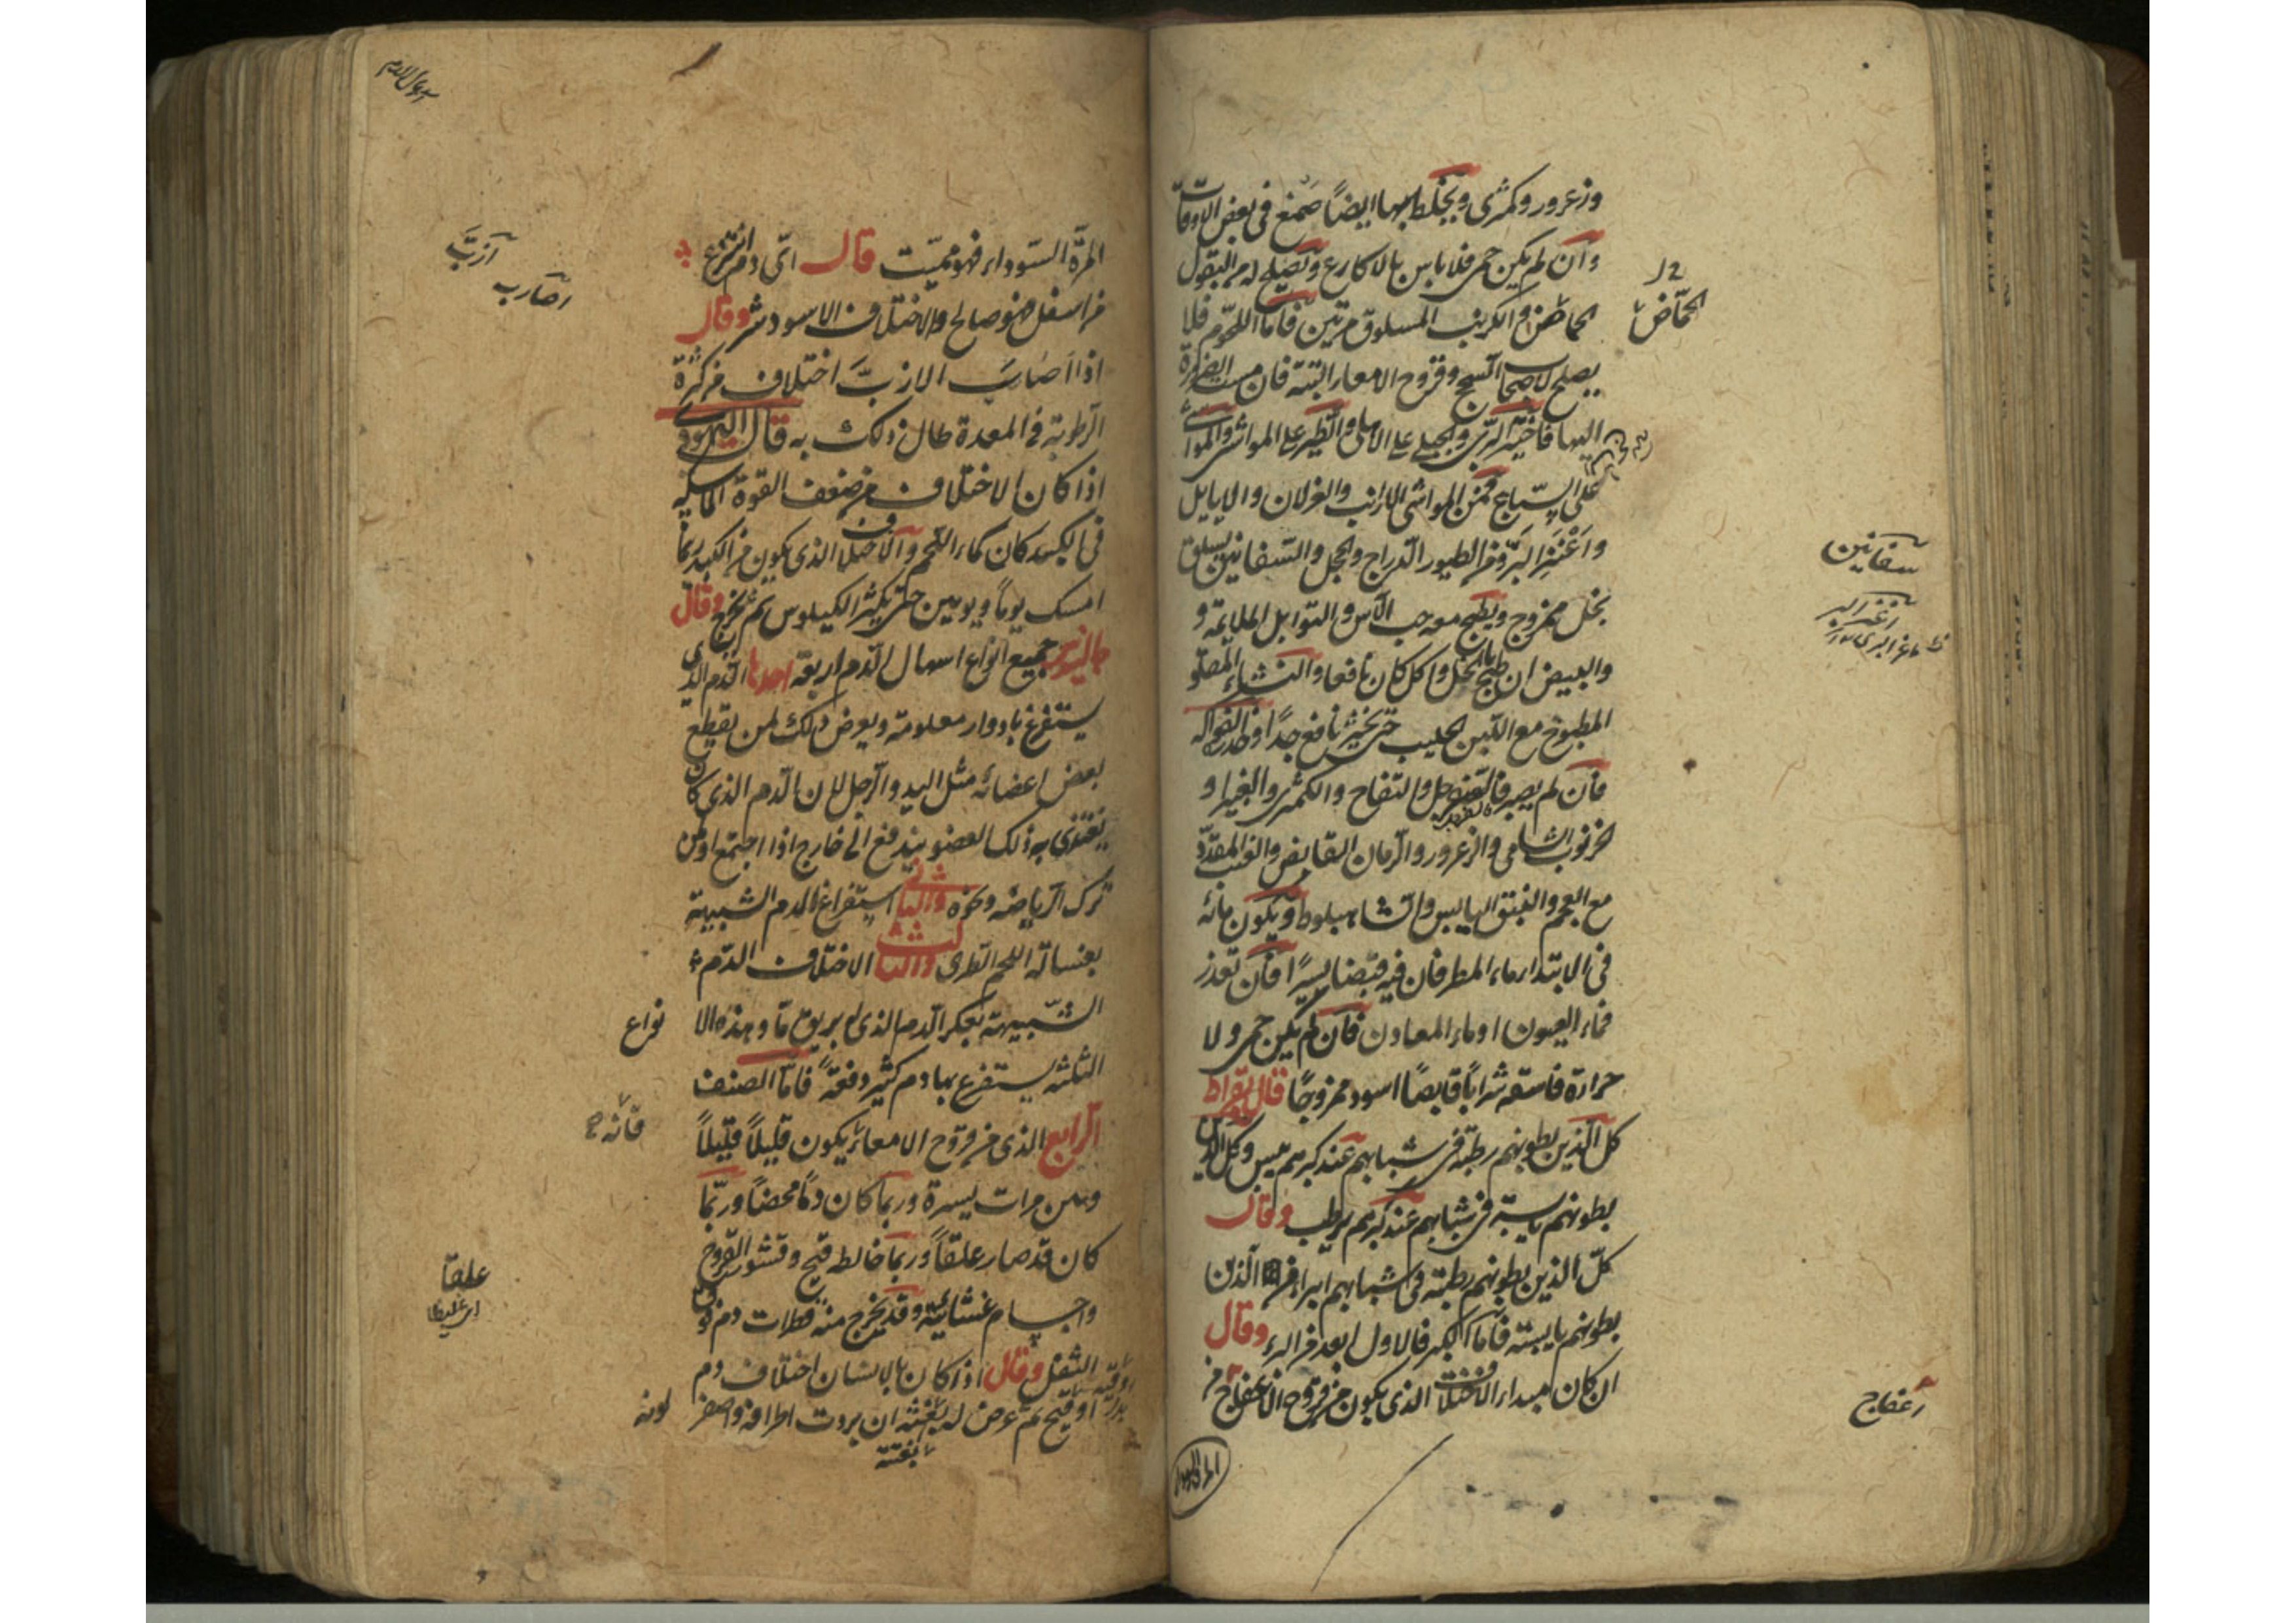 وزعرور وكمثرى ويخلط بها ايضاً صمغ فى بعض الاوقات
وان لم يكن حمى فلا باس بالاكارع ويصلح له من البقول
الحماض والكرنب المسلوق مرتين فاما اللحوم فلا
يصلح لاصحاب السحج وقروح الامعاء البتة فان مست الضرورة
اليها فاختر البرى والجبلى على الاهلى والطير على المواشى والمواشى
على السباع فمن المواشى الارانب والغزلان والايايل
واعنز البر ومن الطيور الدراج والحجل والشفانين يسلق
بخل ممزوج ويطبخ معه حب الآس والتوابل الملايمة و
والبيض ان طبخ بالخل واكل كان نافعا والنشاء المصلو
المطبوخ مع اللبن الحليب حتى يخثر نافع جداً
فان لم يصبر فالسفرجل والتفاح والكمثرى والغبيرا و
الخرنوب الشامى والزعرور والرمان القابض والعنب المقدد
مع العجم والفستق اليابس والشاهبلوط ويكون مائه
فى الابتداء ماء المطر فان فيه قبضا يسيرًا فان تعذر
فماء العيون او ماء المعادن فان لم يكن حمى ولا
حرارة فاسقه شراباً قابضًا اسود ممزوجًا قال بقراط
كل الذين بطونهم رطبة فى شبابهم عند كبرهم تيبس وكل الذين
بطونهم يابسة فى شبابهم عند كبرهم يرطب وقال
كل الذين بطونهم رطبة فى شبابهم ابرا من الذين
بطونهم يابسة فاما الكبر فالاول ابعد من البرء وقال
ان كان مبداء الاختلاف الذى يكون من قروح الاعفاج من
الحماض
شفانين
اعفاج
المرة السوداء فهو مميت قال اى دم استفرغ
من اسفل فهو صالح والاختلاف الاسود شر وقال
اذا اصاب الازبّ اختلاف من كثرة
الرطوبة فى المعدة طال ذلك به قال اليهودى
اذا كان الاختلاف من ضعف القوة الماسكة
فى الكبد كان كماء اللحم والاختلاف الذى يكون من الكبد ربما
امسك يوماً ويومين حتى يكثر الكيلوس ثم يخرج وقال
جالينوس جميع انواع اسهال الدم اربعة احدها الدم الذى
يستفرغ بادوار معلومة ويعرض ذلك لمن يقطع
بعض اعضائه مثل اليد والرجل لان الدم الذى كان
يغتذى به ذلك العضو يندفع الى خارج اذا اجتمع او من
ترك الرياضه ونحوه والثانى استفراغ الدم الشبيهة
بغسالة اللحم الطرى والثالث الاختلاف الدم
الشبيهة بعكر الدم الذى له بريق ما وهذه الا نواع
الثلثة يستفرغ بها دم كثير دفعة فاما الصنف
الرابع الذى من قروح الامعاء يكون قليلاً قليلاً
ومن مرات يسيرة وربما كان دمًا محضاً وربما
كان قد صار علقاً وربما خالطه قيح وقشور القروح
واجسام غشائية وقد يخرج منه قطرات دم فوق
الثفل وقال اذا كان بالانسان اختلاف دم
او قيح ثم عرض له بغتة ان بردت اطرافه واصفر لونه
ازبّ
اصاب به
فانه
علقا
اى غليظا
بغتة